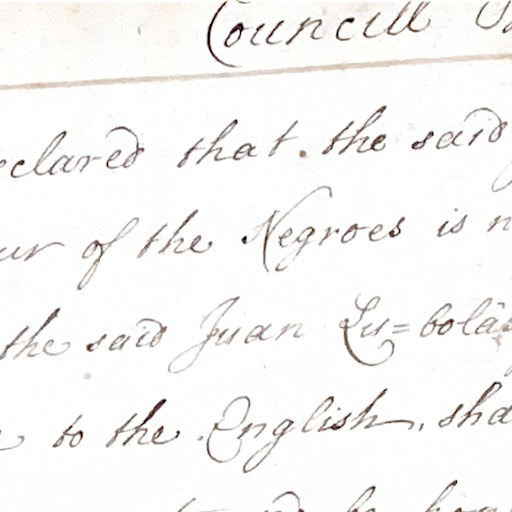 Councill
eclared that the said
ur of the Negroes is n
the said Juan Lu=bola
to the English, sha